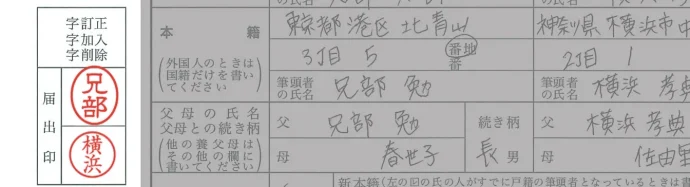 字訂正
字加入
字削除
届出印
兄部
横浜
の氏名
本籍
東京都港区北青山
神奈川県横浜市中
(外国人のときは
国籍だけを書い
てください)
3丁目 5 番地
番
2丁目 1
筆頭者
の氏名
兄部 勉
筆頭者
の氏名
横浜 孝典
父母の氏名
父母との続き柄
(他の養父母は
その他の欄に
書いてください)
父 兄部 勉
続き柄
父 横浜 孝典
母 春世子
長 男
母 佐由里
新本籍(左の☑の氏の人がすでに戸籍の筆頭者となっているときは書